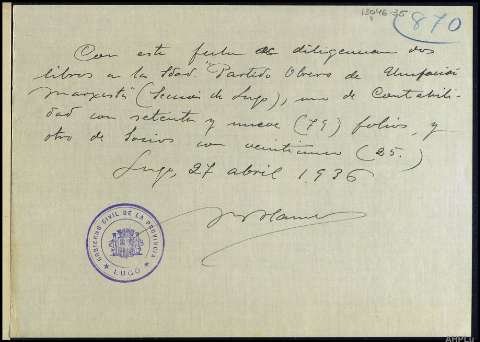 13046-35
870
Con esta fecha se diligencian dos
libros a la Sdad "Partido Obrero de Unificación
Marxista" (Sección de Lugo), uno de Contabili-
dad con setenta y nueve (79) folios, y
otro de Socios con veinticinco (25.)
Lugo, 27 abril 1936
GOBIERNO CIVIL DE LA PROVINCIA
LUGO
AHPLu